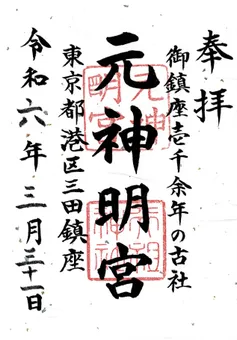 奉拝
御鎮座壱千余年の古社
元神明宮
東京都港区三田鎮座
令和六年三月三十一日
元神明宮